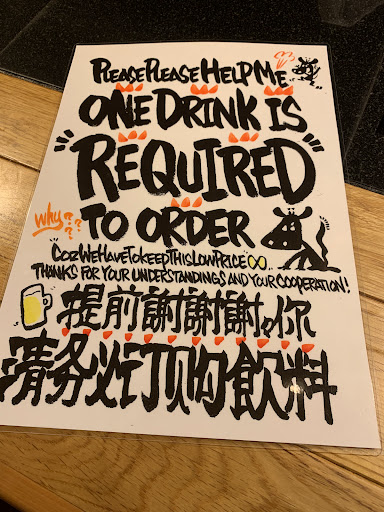 PLEASE PLEASE HELP ME
ONE DRINK IS
REQUIRED
why???
TO ORDER
COZ WE HAVE TO KEEP THIS LOW PRICE
THANKS FOR YOUR UNDERSTANDINGS AND YOUR COOPERATION!
提前謝謝謝你
清务必订购飲料